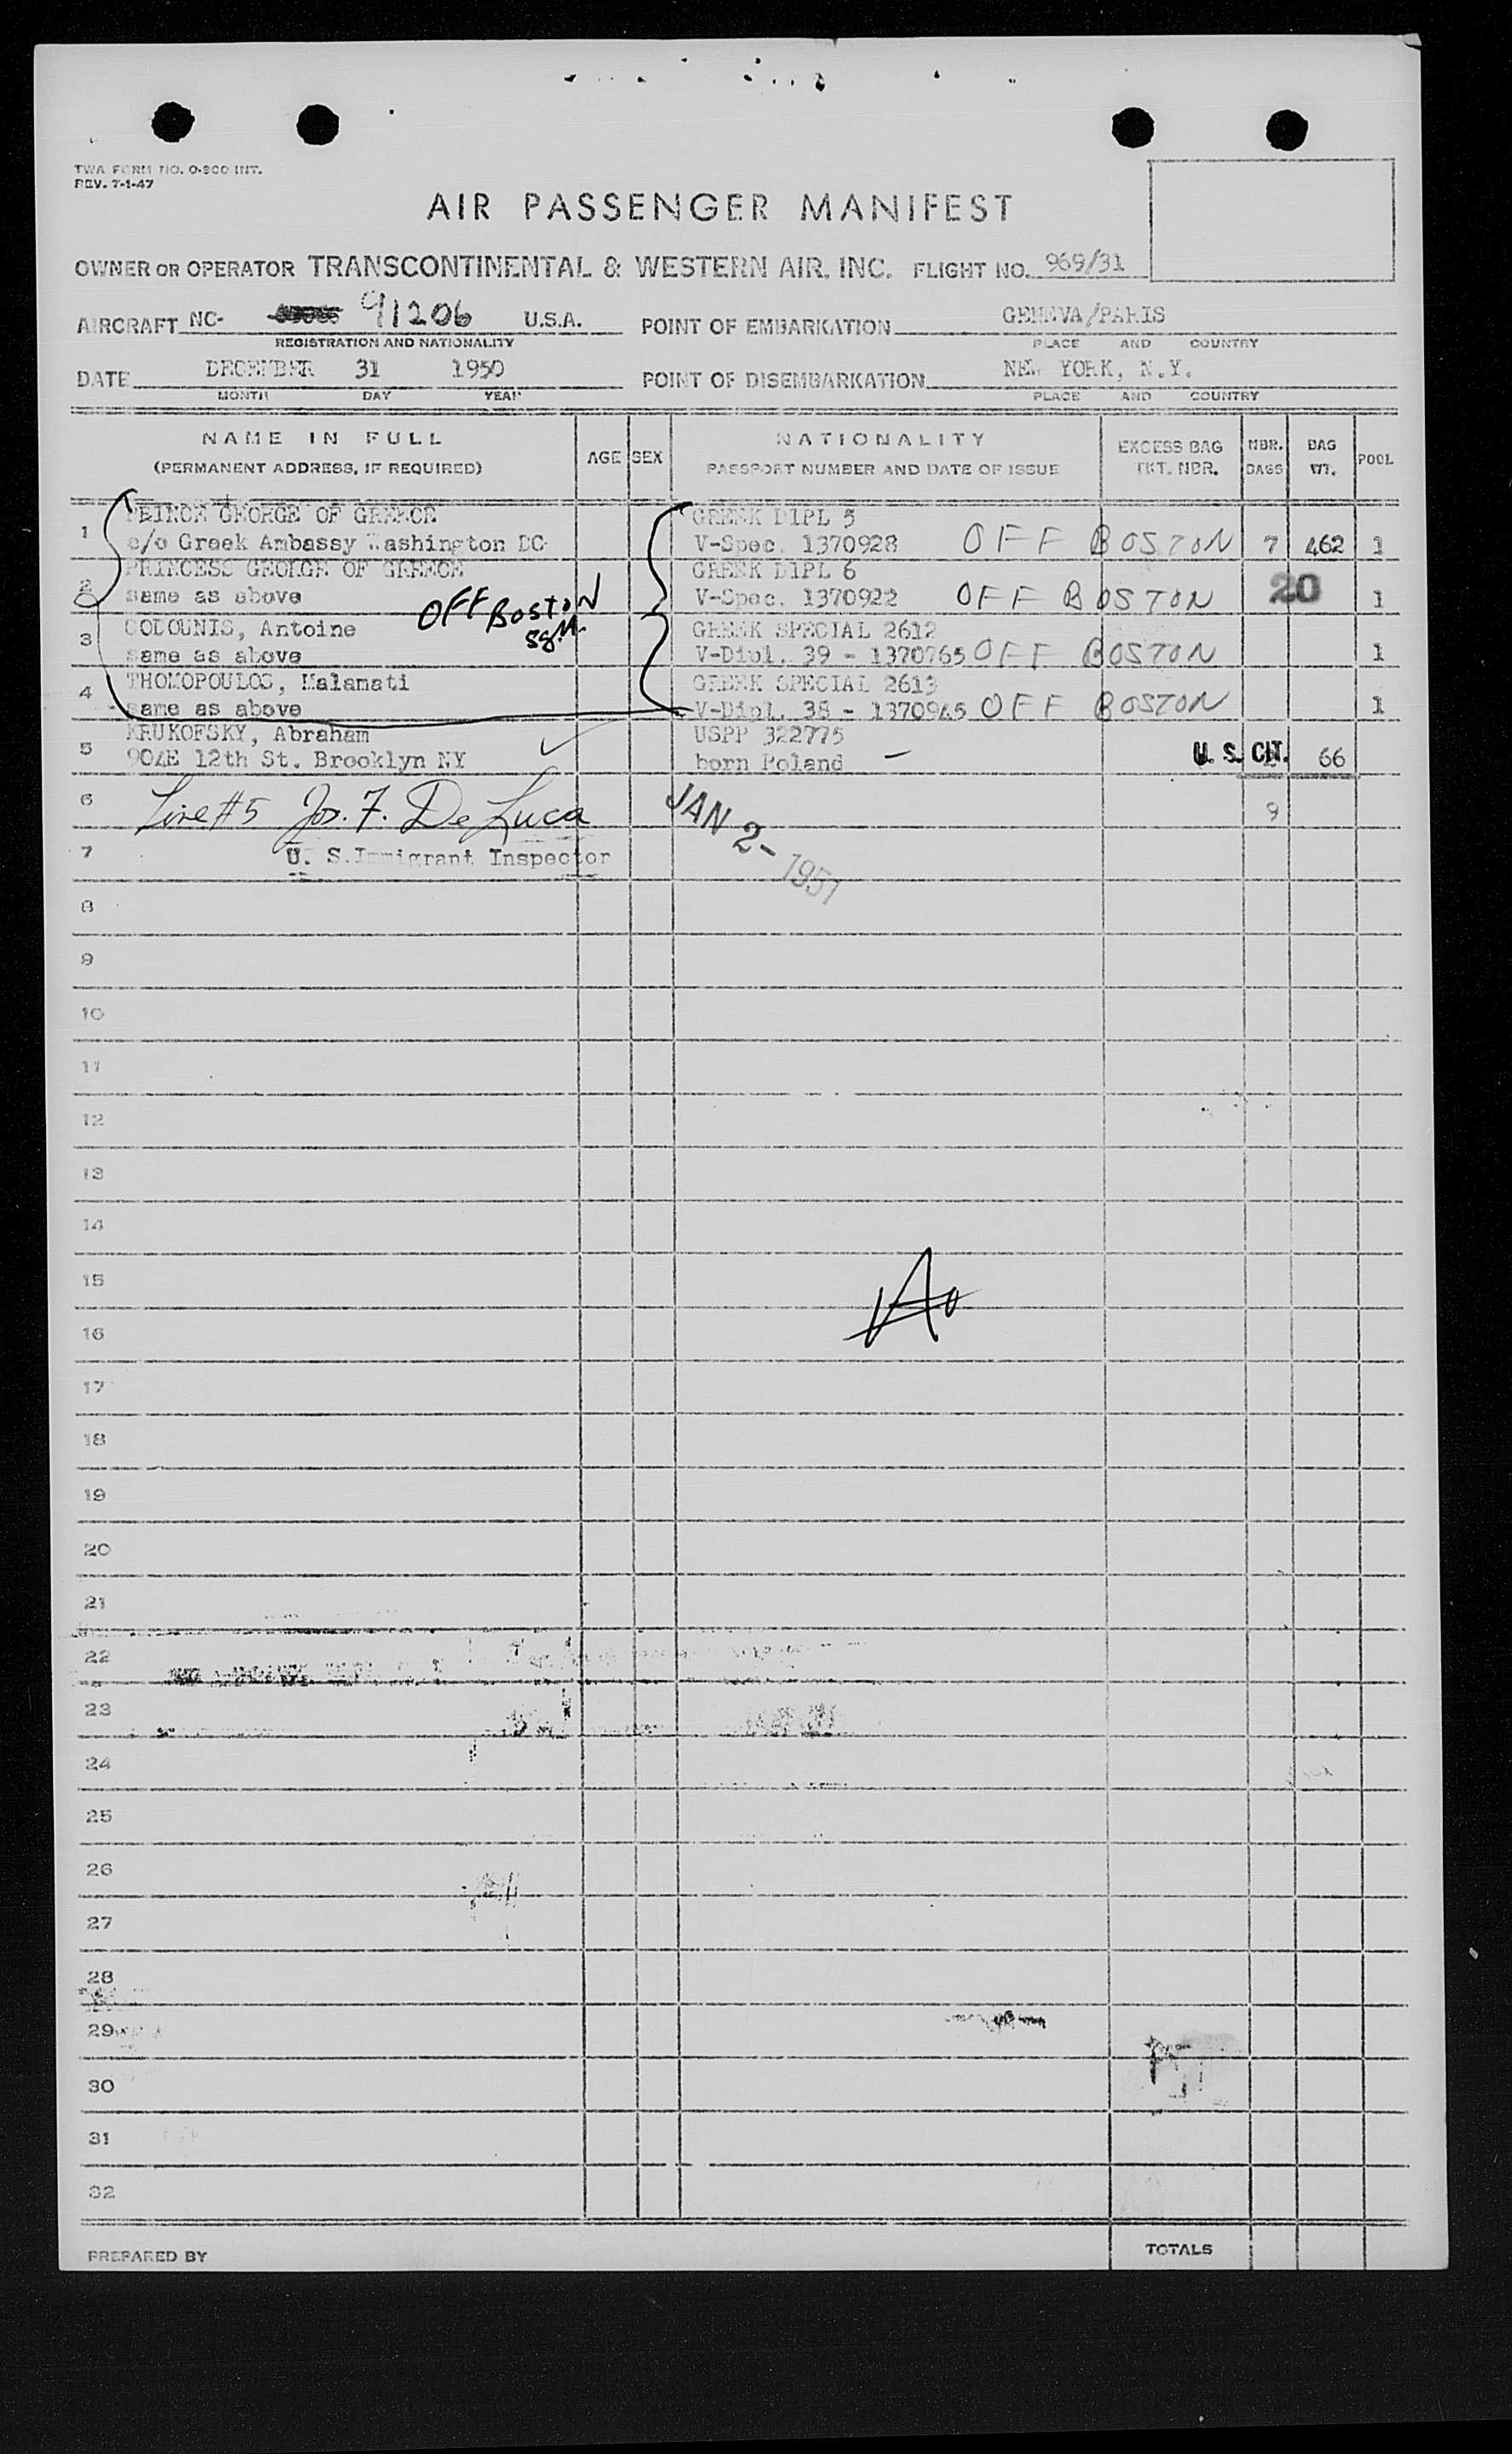 TWA FORM NO. O-900 INT.
REV. 7-1-47
AIR PASSENGER MANIFEST
OWNER OR OPERATOR TRANSCONTINENTAL & WESTERN AIR, INC. FLIGHT NO. 969/31
AIRCRAFT NC- 91206 U.S.A. POINT OF EMBARKATION GENEVA/PARIS
REGISTRATION AND NATIONALITY PLACE AND COUNTRY
DATE DECEMBER 31 1950 POINT OF DISEMBARKATION NEW YORK, N.Y.
MONTH DAY YEAR PLACE AND COUNTRY
NAME IN FULL AGE SEX NATIONALITY EXCESS BAG NBR. BAG POOL
(PERMANENT ADDRESS, IF REQUIRED) PASSPORT NUMBER AND DATE OF ISSUE TKT. NBR. BAGS WT.
PRINCE GEORGE OF GREECE GREEK DIPL 5
1 c/o Greek Ambassy Washington DC V-Spec. 1370928 OFF BOSTON 7 462 1
PRINCESS GEORGE OF GREECE GREEK DIPL 6
2 same as above V-Spec. 1370922 OFF BOSTON 20 1
OFF BOSTON
GODOUNIS, Antoine GREEK SPECIAL 2612
3 same as above V-Dipl. 39 - 1370765 OFF BOSTON 1
THOMOPOULOS, Malamati GREEK SPECIAL 2613
4 same as above V-Dipl. 38 - 1370945 OFF BOSTON 1
KRUKOFSKY, Abraham USPP 322775
5 904E 12th St. Brooklyn NY born Poland — U. S. CIT. 66
6 Line #5 Jos. F. De Luca 9
JAN 2- 1951
7 U. S.Immigrant Inspector
8
9
10
11
12
13
14
15
16
17
18
19
20
21
22
23
24
25
26
27
28
29
30
31
32
PREPARED BY TOTALS